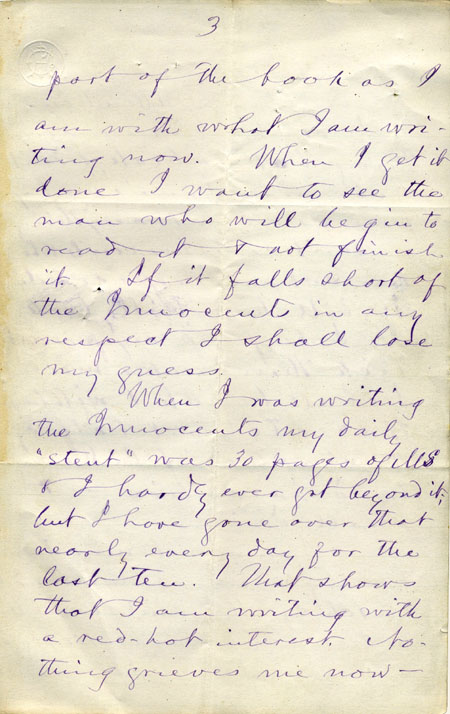 3
part of the book as I
am with what I am wri-
ting now. When I get it
done I want to see the
man who will begin to
read it & not finish
it. If it falls short of
the Innocents in any
respect I shall lose
my guess.
When I was writing
the Innocents my daily
"stent" was 30 pages of MS
& I hardly ever got beyond it;
but I have gone over that
nearly every day for the
last ten. That shows
that I am writing with
a red-hot interest. No-
thing grieves me now —